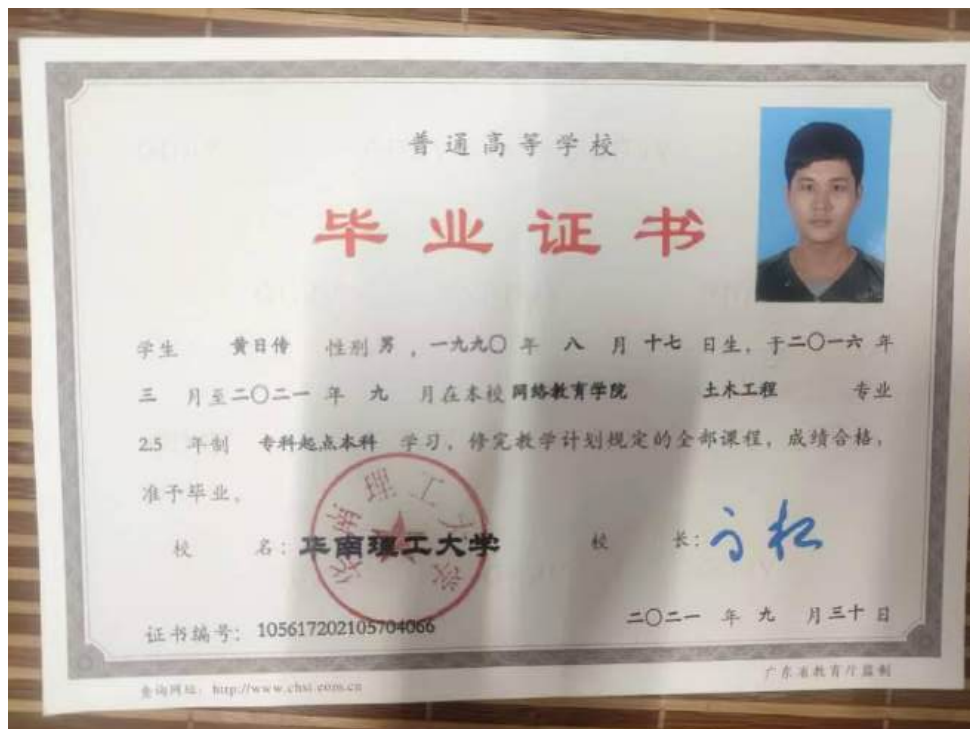 普通高等学校
毕业证书
学生 黄日传 性别 男 ，一九九〇 年 八 月 十七 日生，于二〇一六 年
三 月至二〇二一 年 九 月在本校 网络教育学院 土木工程 专业
2.5 年制 专科起点本科 学习，修完教学计划规定的全部课程，成绩合格，
准予毕业。
华南理工大学
校 名：华南理工大学 校 长：
证书编号：105617202105704066 二〇二一 年 九 月三十日
查询网址：http://www.chsi.com.cn 广东省教育厅监制